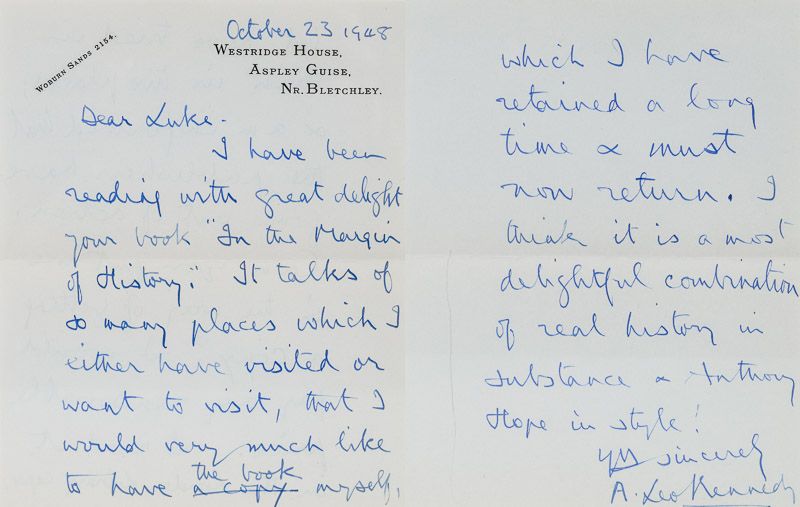 October 23 1948
Woburn Sands 2154.
Westridge House,
Aspley Guise,
Nr. Bletchley.
Dear Luke -
I have been
reading with great delight
your book "In the Margin
of History". It talks of
so many places which I
either have visited or
want to visit, that I
would very much like
to have a copy the book myself,
which I have
retained a long
time & must
now return. I
think it is a most
delightful combination
of real history in
substance & Anthony
Hope in style!
Yrs sincerely
A. Leo Kennedy